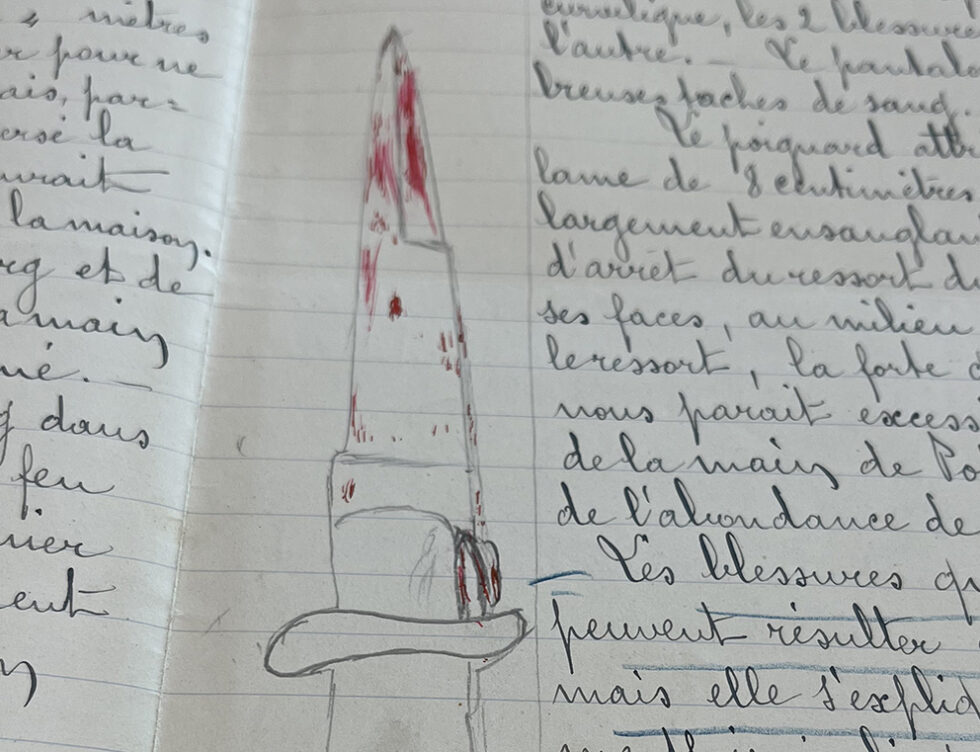 4 mètres
r pour ne
ais, par=
ersé la
urait
la maison.
rg et de
a main
né. —
g dans
feu
nier
ent
les 2 blessures
l'autre. — Le pantalo
breuses taches de sang.
Le poignard attr
lame de 8 centimètres
largement ensanglan
d'arrêt du ressort du
ses faces, au milieu
le ressort, la forte
nous parait excess
de la main de Po
de l'abondance de
Les blessures qu
peuvent résulter
mais elle s'expliq